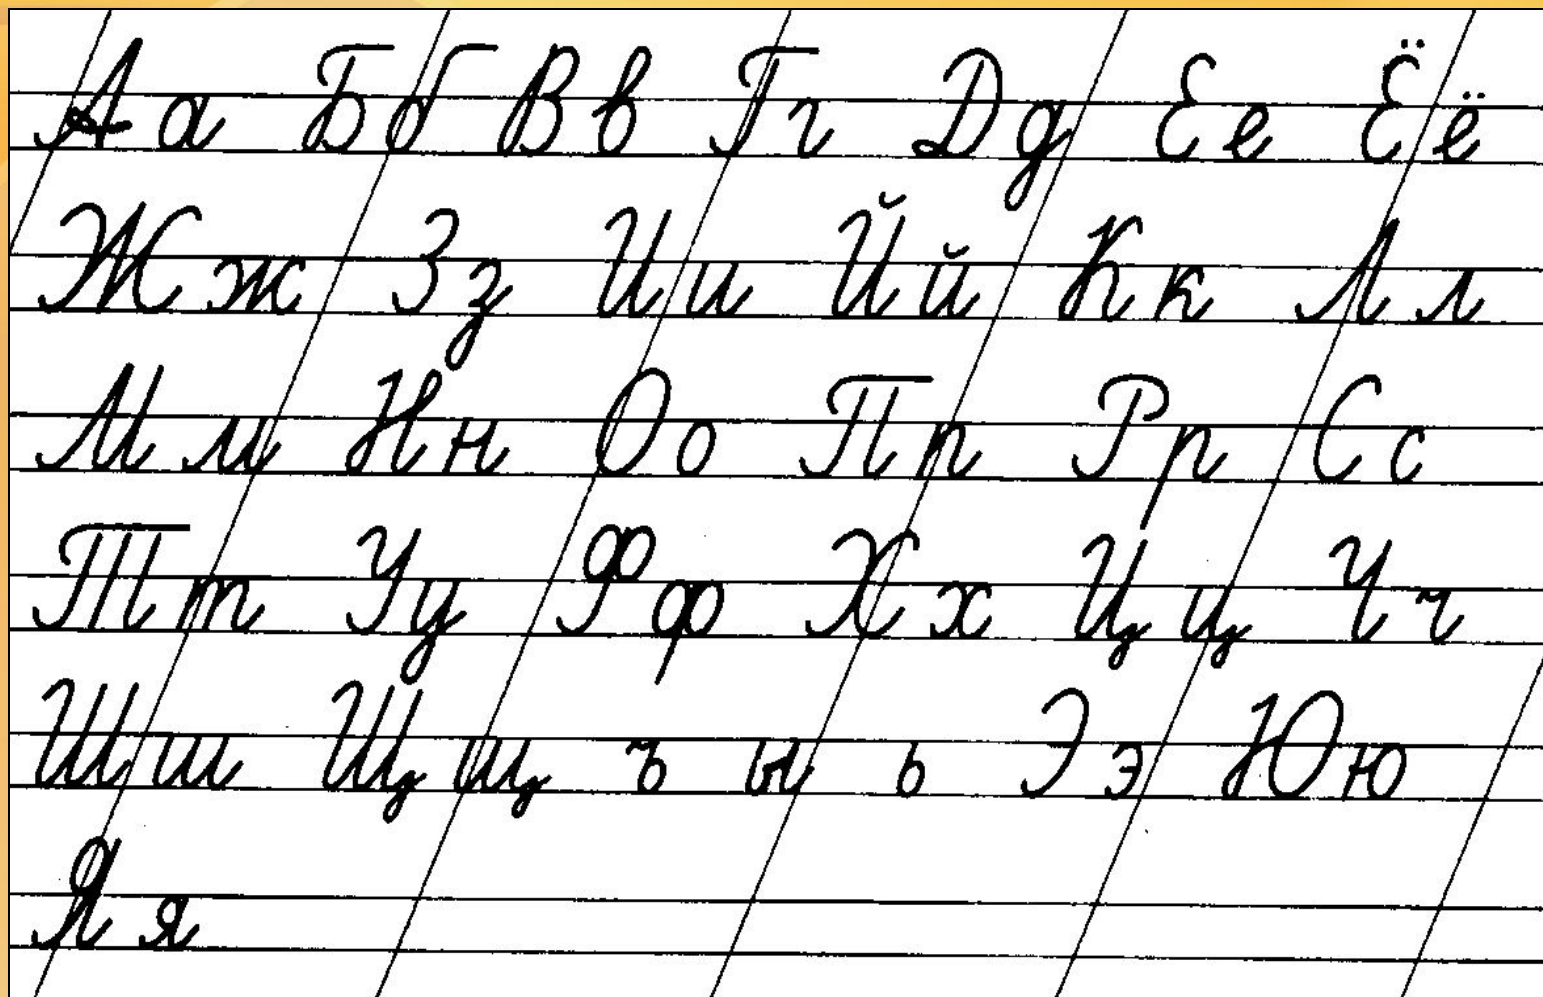 Аа Бб Вв Гг Дд Ее Ёё
Жж Зз Ии Йй Кк Лл
Мм Нн Оо Пп Рр Сс
Тт Уу Фф Хх Цц Чч
Шш Щщ ъ ы ь Ээ Юю
Яя